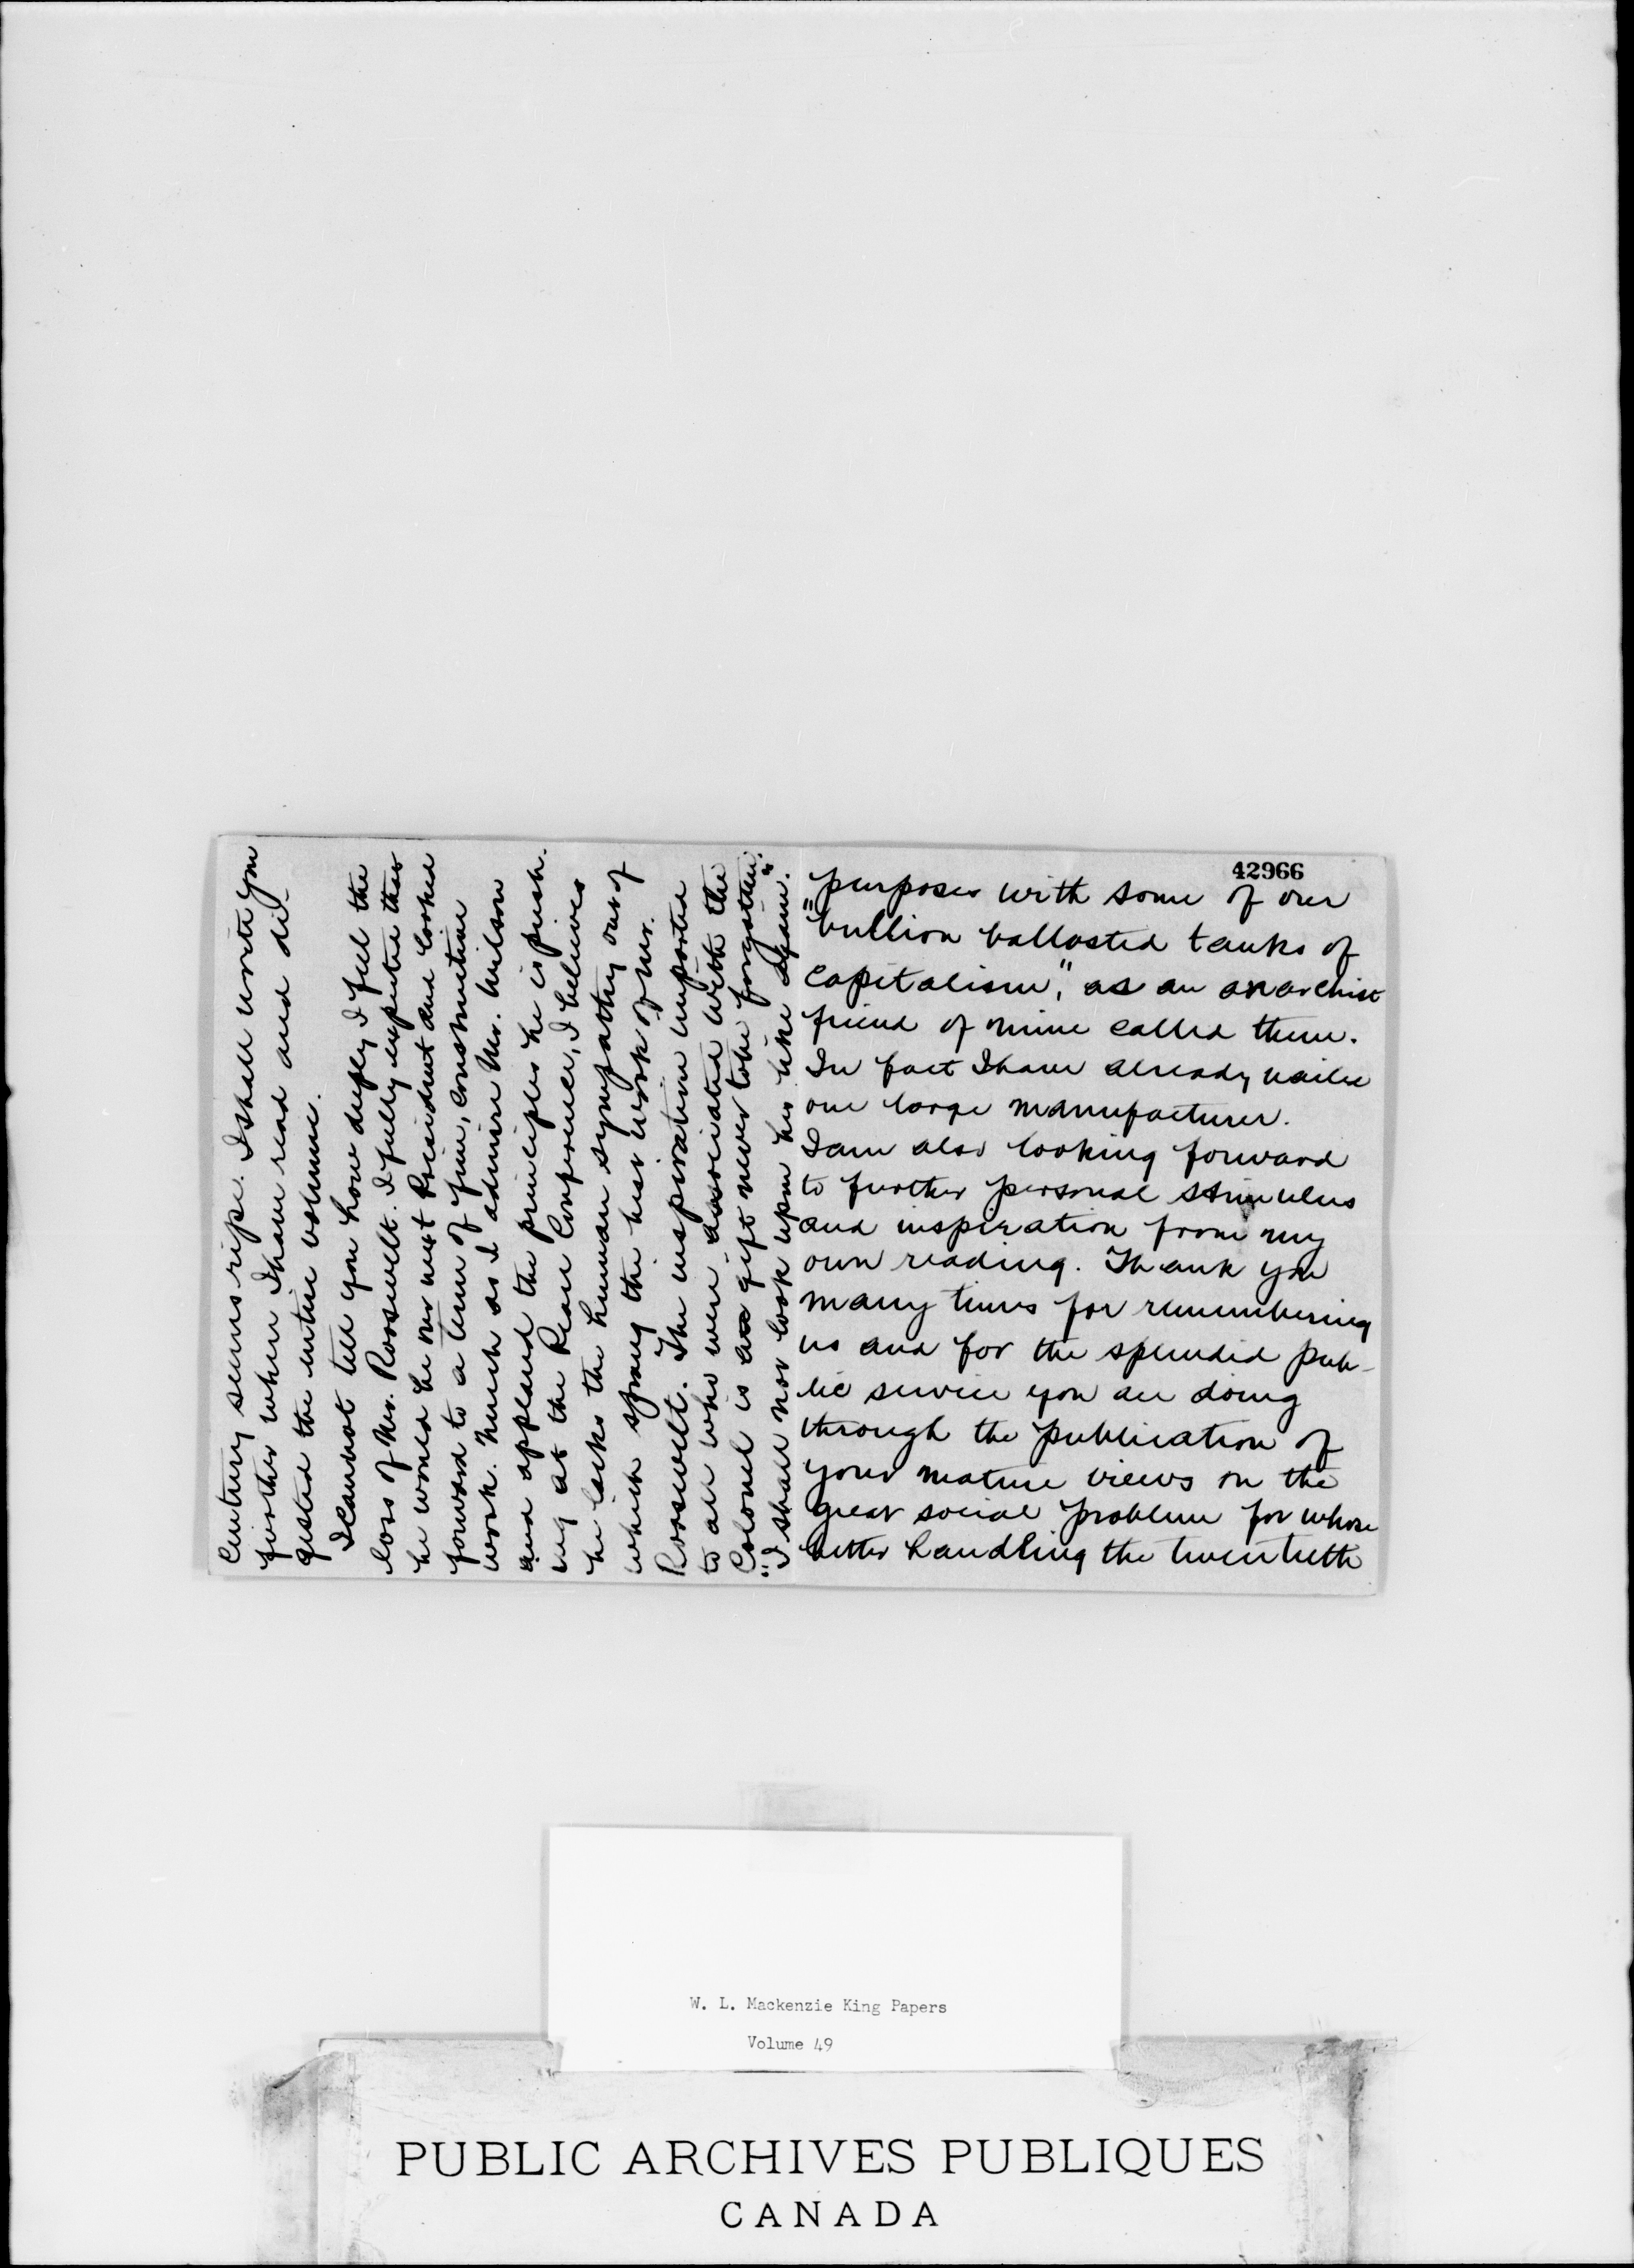 42966
purposes with some of our
"bullion ballasted tanks of
capitalism", as an anarchist
friend of mine called them.
In fact I have already nailed
one large manufacturer.
I am also looking forward
to further personal stimulus
and inspiration from my
own reading. Thank you
many times for remembering
us and for the splendid pub-
lic service you are doing
through the publication of
your mature views on the
great social problem for whose
better handling the twentieth
century seems ripe. I shall write you
further when I have read and di-
gested the entire volume.
I cannot tell you how deeply I feel the
loss of Mr. Roosevelt. I fully expected that
he would be our next President and looked
forward to a term of fine, constructive
work. Much as I admire Mr. Wilson
and applaud the principles he is push-
ing at the Peace Conference, I believe
he lacks the human sympathy out of
which sprang the best work of Mr.
Roosevelt. The inspiration imparted
to all who were associated with the
Colonel is a gift never to be forgotten.
"I shall not look upon his like again."
W. L. Mackenzie King Papers
Volume 49
PUBLIC ARCHIVES PUBLIQUES
CANADA